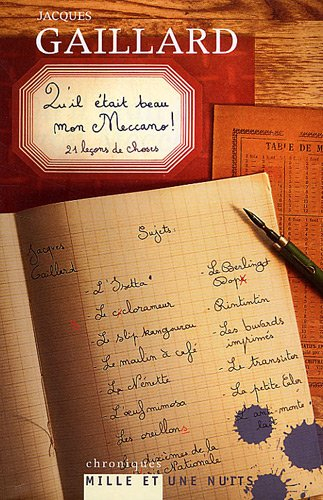 JACQUES
GAILLARD
Qu'il était beau
mon Meccano!
21 leçons de choses
TABLE DE M
Jacques
Gaillard
Sujets:
- L'"Isetta"
- Le ciclorameur
- Le slip kangourou
- Le moulin à café
- La Nénette
- L'œuf mimosa
- Les oreillons
dixièmes de
Nationale
- Le Berlingot
Dop
- Rintintin
- Les buvards
imprimés
- Le transistor
- La petite
L'anti-monte
lait
chroniques
MILLE ET UNE NUITS